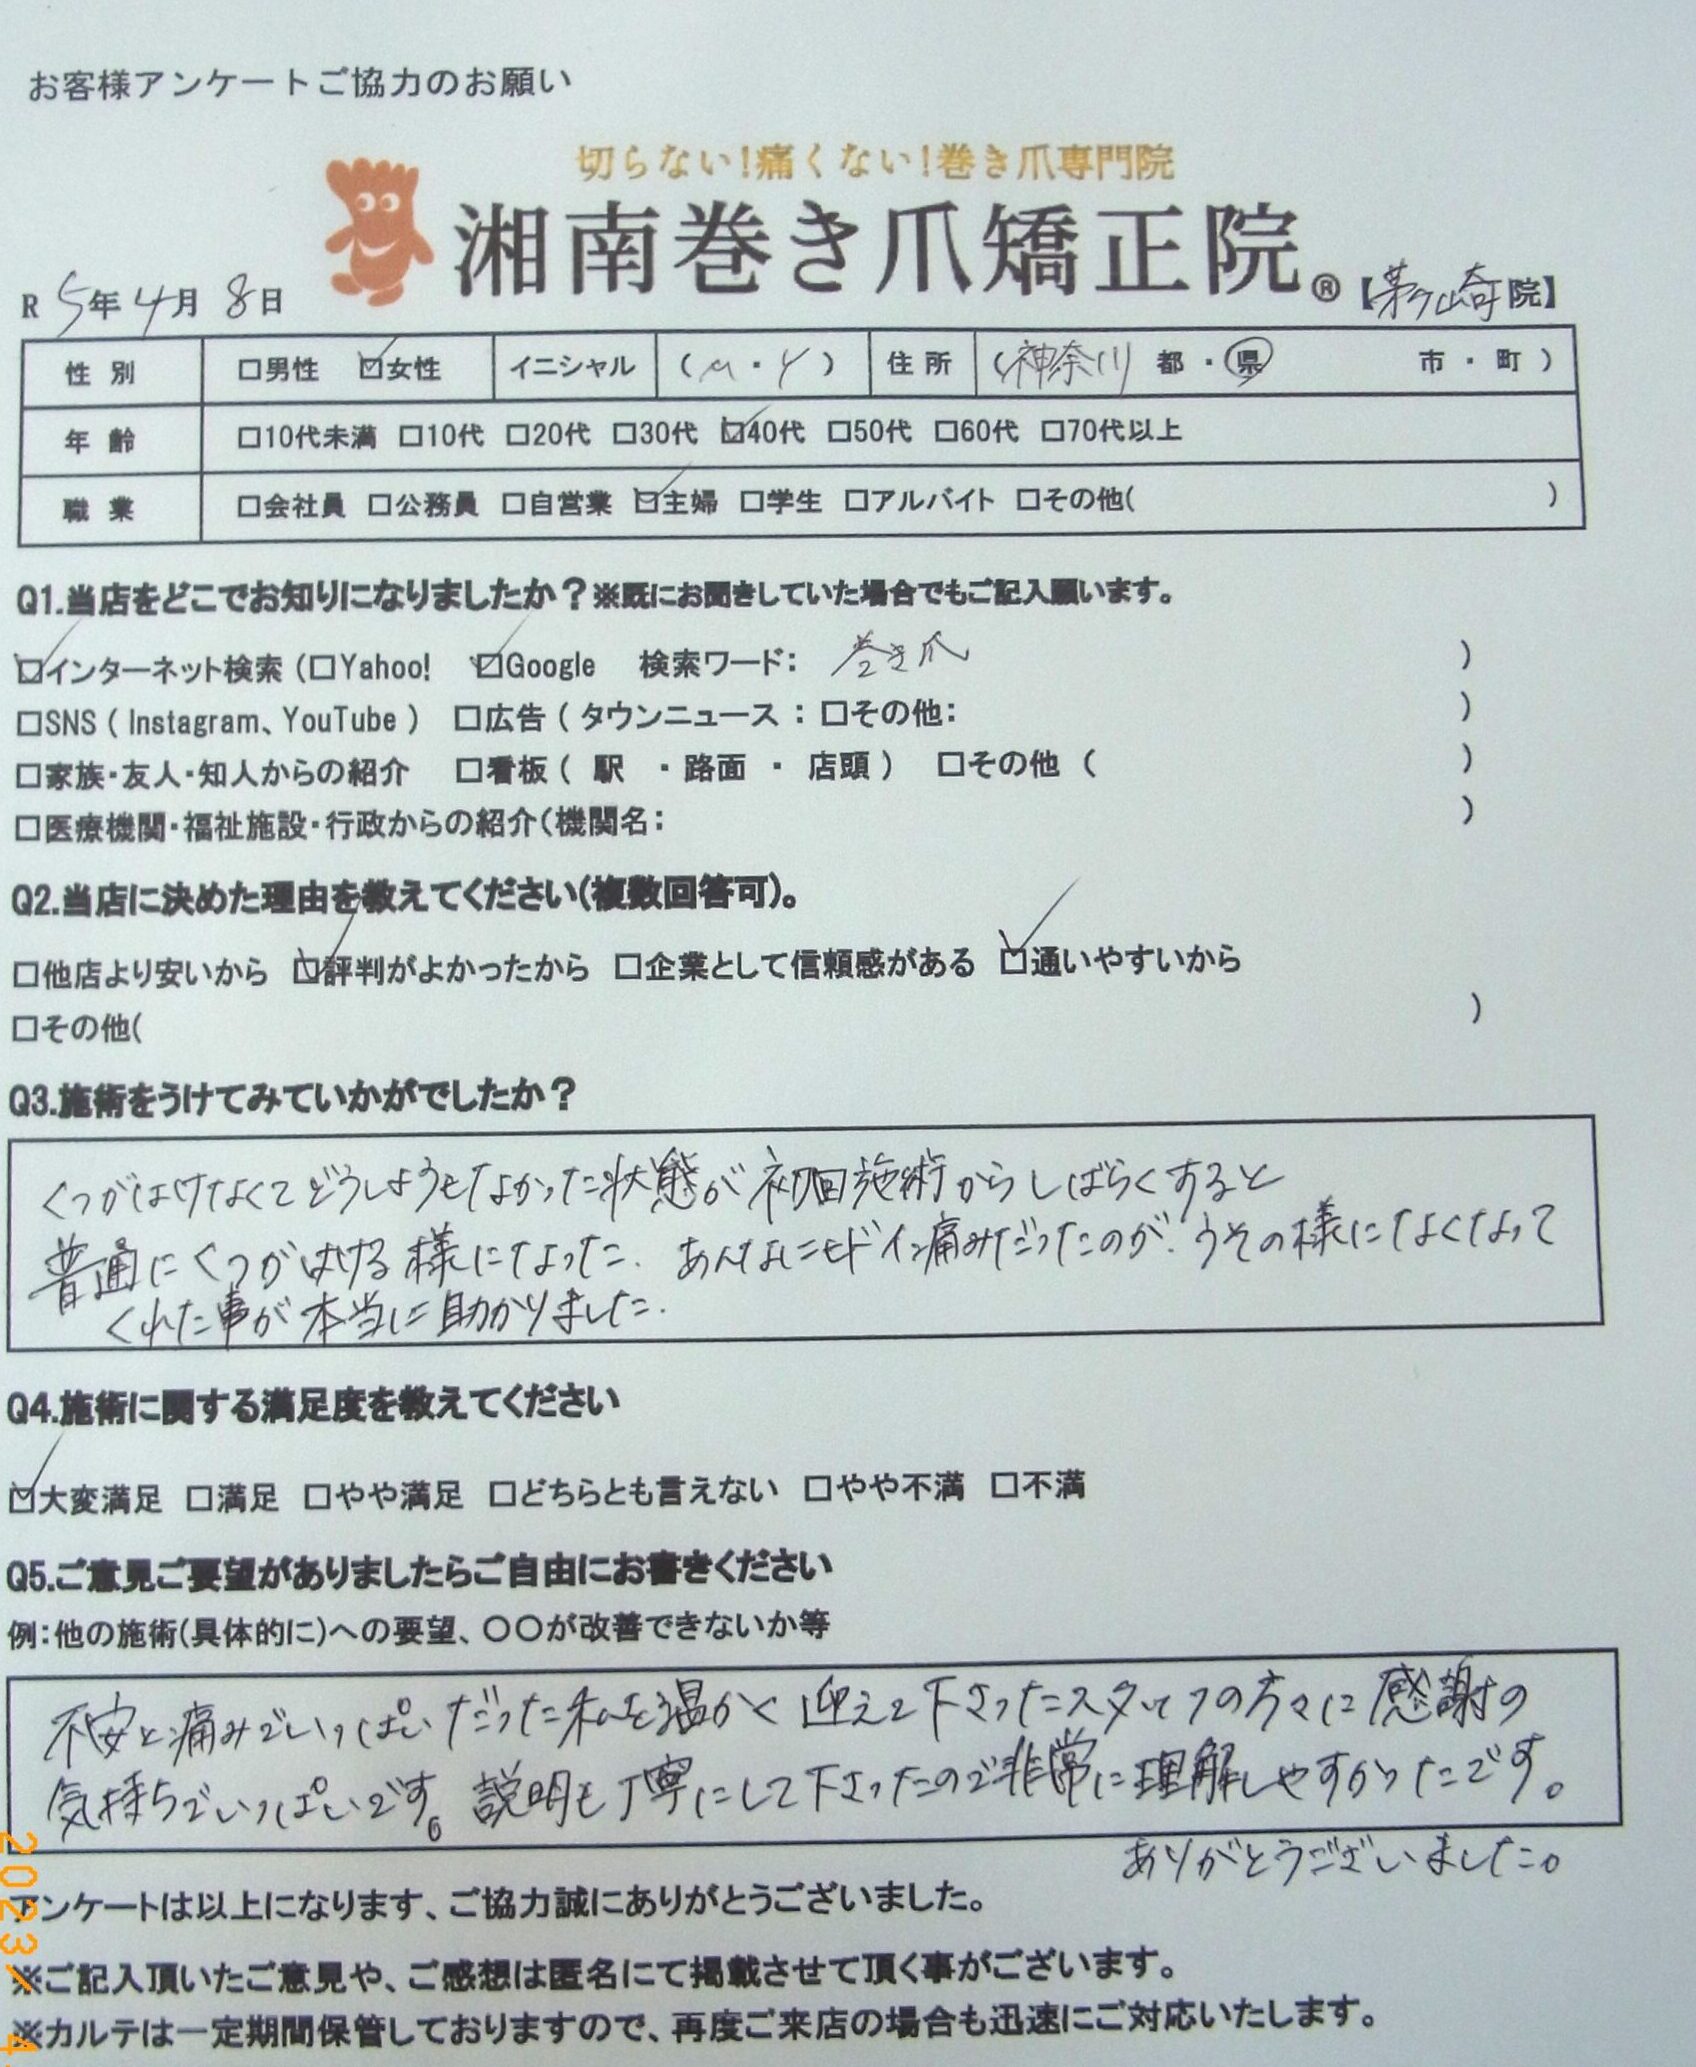 お客様アンケートご協力のお願い
切らない!痛くない!巻き爪専門院
湘南巻き爪矯正院®【茅ヶ崎院】
R 5年 4月 8日
性別 □男性 ☑女性 イニシャル (M・Y) 住所 (神奈川 都・県 市・町)
年齢 □10代未満 □10代 □20代 □30代 ☑40代 □50代 □60代 □70代以上
職業 □会社員 □公務員 □自営業 ☑主婦 □学生 □アルバイト □その他( )
Q1.当店をどこでお知りになりましたか?※既にお聞きしていた場合でもご記入願います。
☑インターネット検索(□Yahoo! ☑Google 検索ワード: 巻き爪 )
□SNS(Instagram、YouTube) □広告(タウンニュース:□その他: )
□家族・友人・知人からの紹介 □看板( 駅 ・路面 ・ 店頭) □その他 ( )
□医療機関・福祉施設・行政からの紹介(機関名: )
Q2.当店に決めた理由を教えてください(複数回答可)。
□他店より安いから ☑評判がよかったから □企業として信頼感がある ☑通いやすいから
□その他( )
Q3.施術をうけてみていかがでしたか?
くつがはけなくてどうしようもなかった状態が初回施術からしばらくすると
普通にくつがはける様になった. あんなにヒドイ痛みだったのが、うその様になくなって
くれた事が本当に助かりました.
Q4.施術に関する満足度を教えてください
☑大変満足 □満足 □やや満足 □どちらとも言えない □やや不満 □不満
Q5.ご意見ご要望がありましたらご自由にお書きください
例:他の施術(具体的に)への要望、〇〇が改善できないか等
不安と痛みでいっぱいだった私を温かく迎えて下さったスタッフの方々に感謝の
気持ちでいっぱいです。説明も丁寧にして下さったので非常に理解しやすかったです。
ありがとうございました。
アンケートは以上になります、ご協力誠にありがとうございました。
※ご記入頂いたご意見や、ご感想は匿名にて掲載させて頂く事がございます。
※カルテは一定期間保管しておりますので、再度ご来店の場合も迅速にご対応いたします。
2023/ 4.